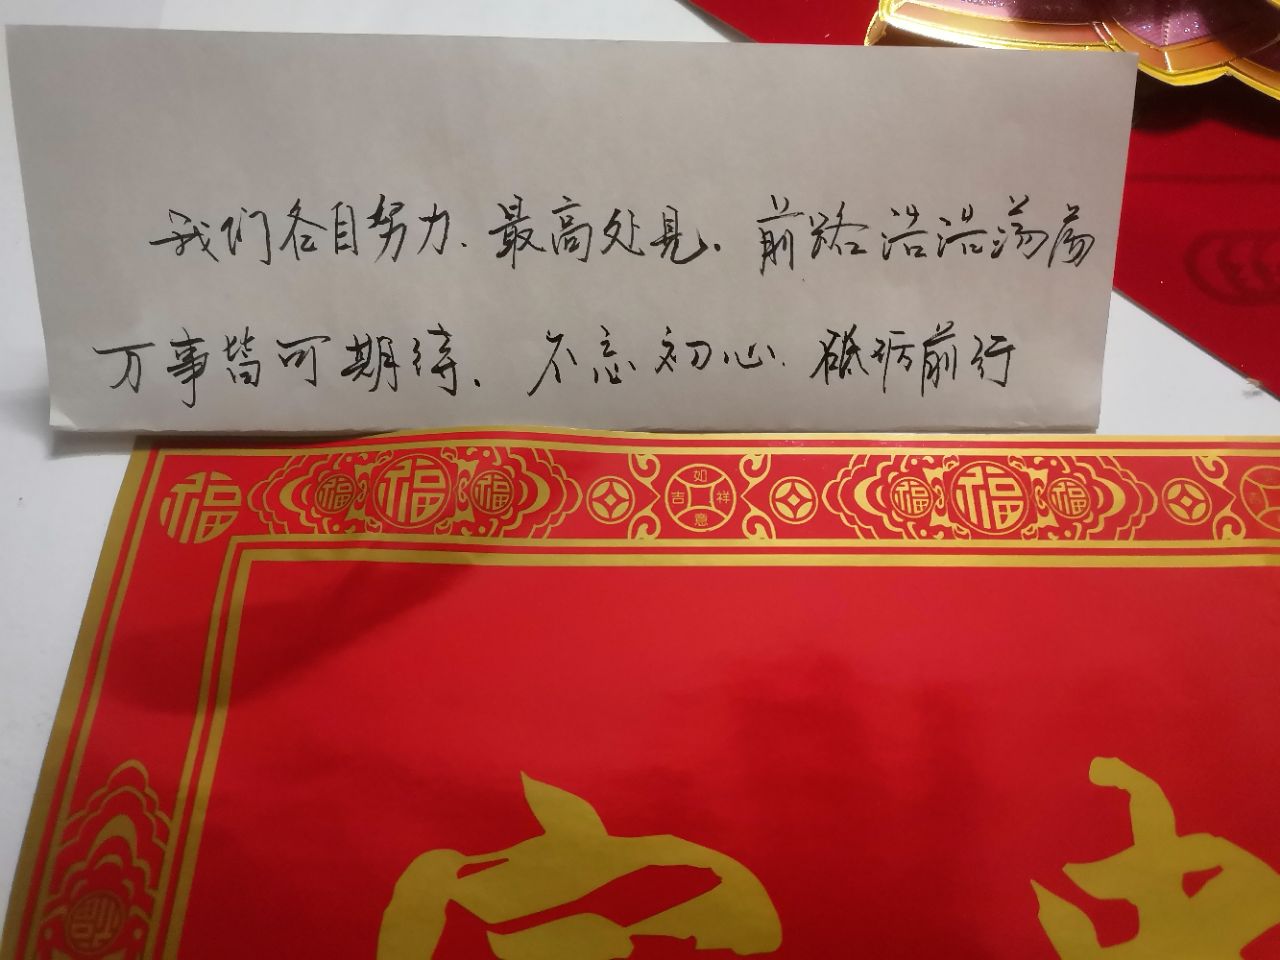 我们各自努力、最高处见。前路浩浩荡荡
万事皆可期待、不忘初心、砥砺前行
福 福 福 福 如意吉祥 福 福 福
福